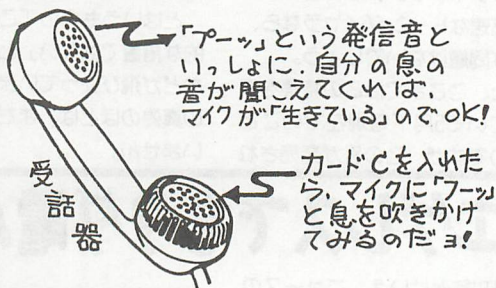 「プーッ」という発信音と
いっしょに、自分の息の
音が聞こえてくれば、
マイクが「生きている」のでOK!
カードCを入れた
ら、マイクに「フーッ」
と息を吹きかけ
てみるのだョ!
受話器